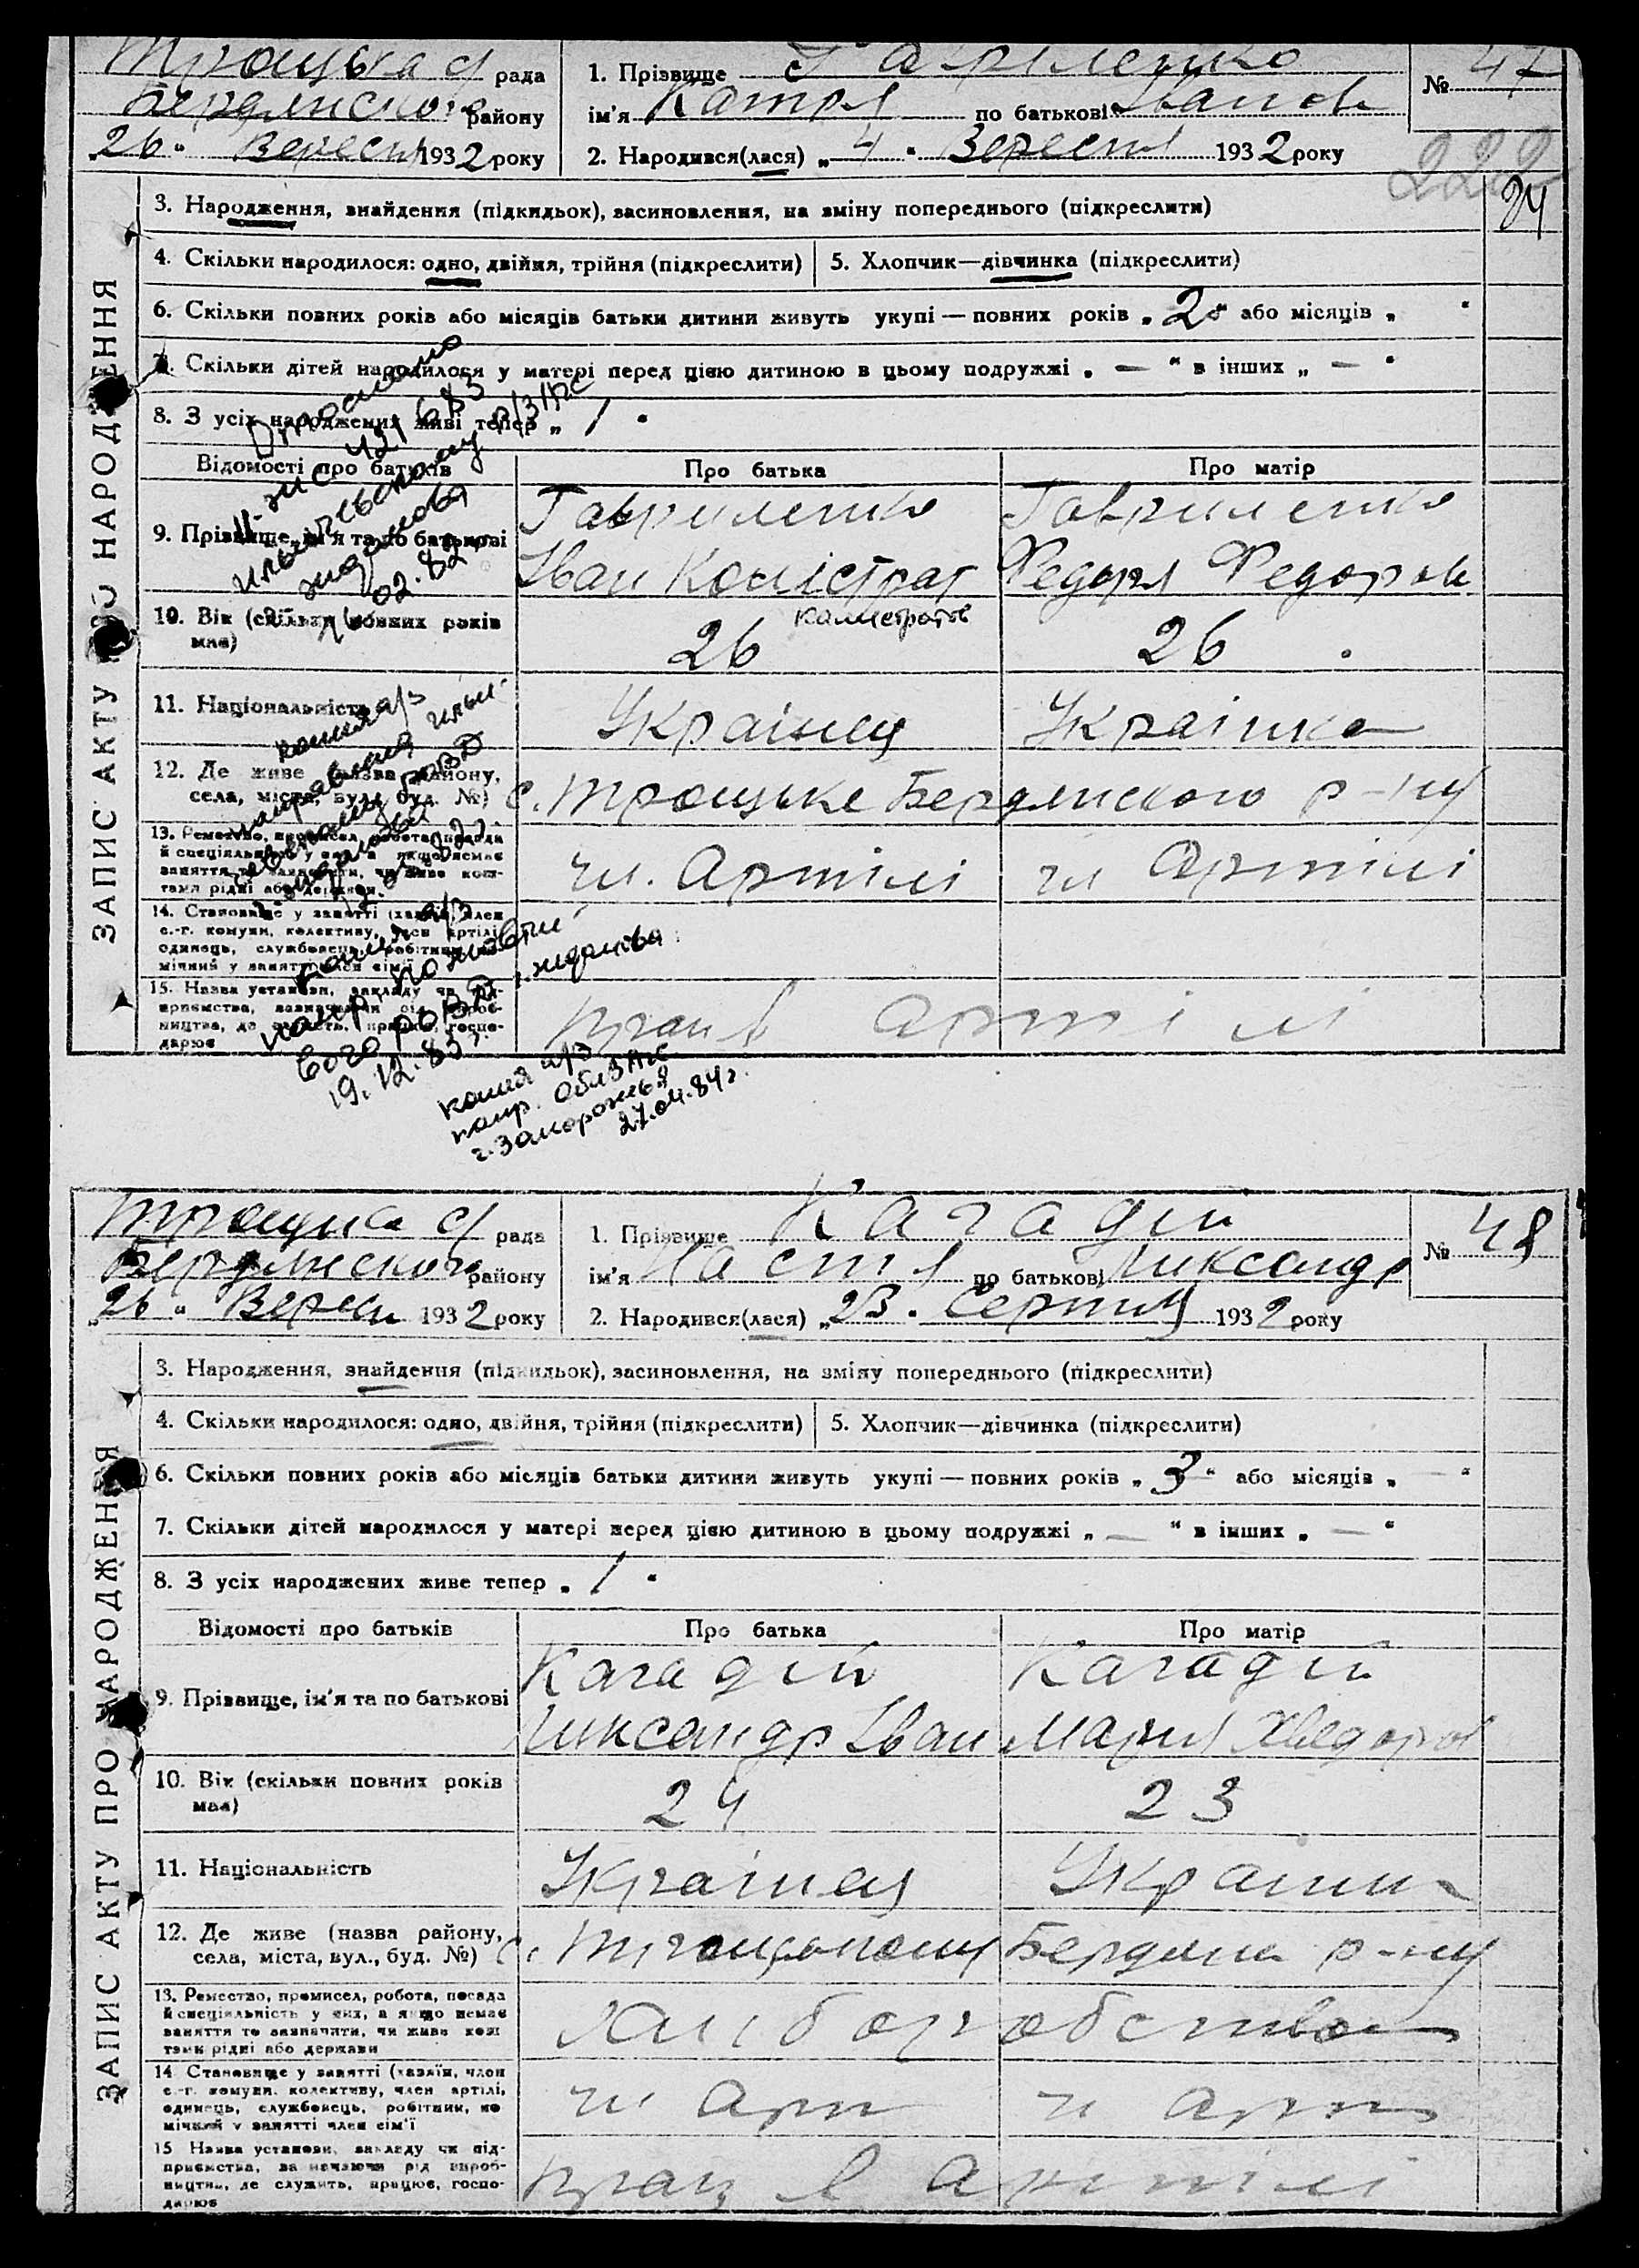 Троцька с/ рада
Бердянского району
„26„ Вересня 1932 року
1. Прізвище Гавриленко
ім'я Катря по батькові Іванов
2. Народився(лася) „4„ Вересня 1932 року
№ 47
222
24
ЗАПИС АКТУ ПРО НАРОДЖЕННЯ
3. Народження, знайдення (підкидьок), засиновлення, на зміну попереднього (підкреслити)
4. Скільки народилося: одно, двійня, трійня (підкреслити)
5. Хлопчик—дівчинка (підкреслити)
6. Скільки повних років або місяців батьки дитини живуть укупі — повних років „2“ або місяців „ “
7. Скільки дітей народилося у матері перед цією дитиною в цьому подружжі „ — “ в інших „ — “
8. З усіх народжених живі тепер „ 1 “
Відомості про батьків
Про батька
Про матір
9. Прізвище, ім'я та по батькові
Гавриленко
Іван Коністрат
Калистратов
Гавриленко
Федора Федоров
10. Вік (скільки повних років має)
26
26
11. Національність
Українец
Українка
12. Де живе (назва району, села, міста, вул., буд. №)
с. Троцьке Бердянского р-ну
13. Ремество, промисел, робота, посада й спеціяльність у них, а якщо немає заняття то зазначити, чи живе коштами рідні або держави
чл. Артілі
чл Артілі
14. Становище у занятті (хазяїн, член с.-г. комуни, колективу, член артілі, одинець, службовець, робітник, помічний у занятті член сім'ї
15. Назва установи, закладу чи підприємства, зазначаючи рід виробництва, де служить, працює, господарює
прац в артілі
копия а/з
направлена
копия а/з
напр. по
РОВД г. Жданова
19.12.83 г.
копия а/з
напр. облЗАГС
г. Запорожья
27.04.84 г.
Троцька с/ рада
Бердянского району
„26„ Вересн 1932 року
1. Прізвище Кагадій
ім'я Настя по батькові Ликсандр
2. Народився(лася) „23„ Серпня 1932 року
№ 48
ЗАПИС АКТУ ПРО НАРОДЖЕННЯ
3. Народження, знайдення (підкидьок), засиновлення, на зміну попереднього (підкреслити)
4. Скільки народилося: одно, двійня, трійня (підкреслити)
5. Хлопчик—дівчинка (підкреслити)
6. Скільки повних років або місяців батьки дитини живуть укупі — повних років „3“ або місяців „ — “
7. Скільки дітей народилося у матері перед цією дитиною в цьому подружжі „ — “ в інших „ — “
8. З усіх народжених живе тепер „ 1 “
Відомості про батьків
Про батька
Про матір
9. Прізвище, ім'я та по батькові
Кагадій
Ликсандр Іван
Кагадій
Мария Хведоров
10. Вік (скільки повних років має)
24
23
11. Національність
Украінец
Украінк
12. Де живе (назва району, села, міста, вул., буд. №)
с. Троцькому Бердянс р-ну
13. Ремество, промисел, робота, посада й спеціяльність у них, а якщо немає заняття то зазначити, чи живе коштами рідні або держави
Хліборобством
14 Становище у занятті (хазяїн, член с.-г. комуни, колективу, член артілі, одинець, службовець, робітник, помічний у занятті член сім'ї
чл Арт
чл арт
15 Назва установи, закладу чи підприємства, зазначаючи рід виробництва, де служить, працює, господарює
прац в Артілі